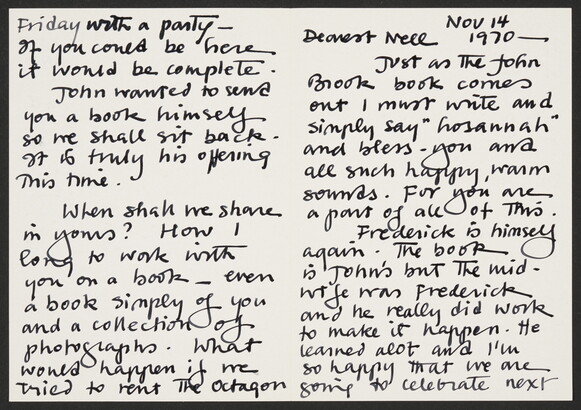 Nov 14
1970—
Dearest Nell
Just as the John
Brook book comes
out I must write and
simply say "hosannah"
and bless-you and
all such happy, warm
sounds. For you are
a part of all of this.
Frederick is himself
again. The book
is John's but the mid-
wife was Frederick
and he really did work
to make it happen. He
learned alot and I'm
so happy that we are
going to celebrate next
Friday with a party—
If you could be here
it would be complete.
John wanted to send
you a book himself
so we shall sit back.
It is truly his offering
this time.
When shall we share
in yours? How I
long to work with
you on a book — even
a book simply of you
and a collection of
photographs. What
would happen if we
tried to rent the Octagon